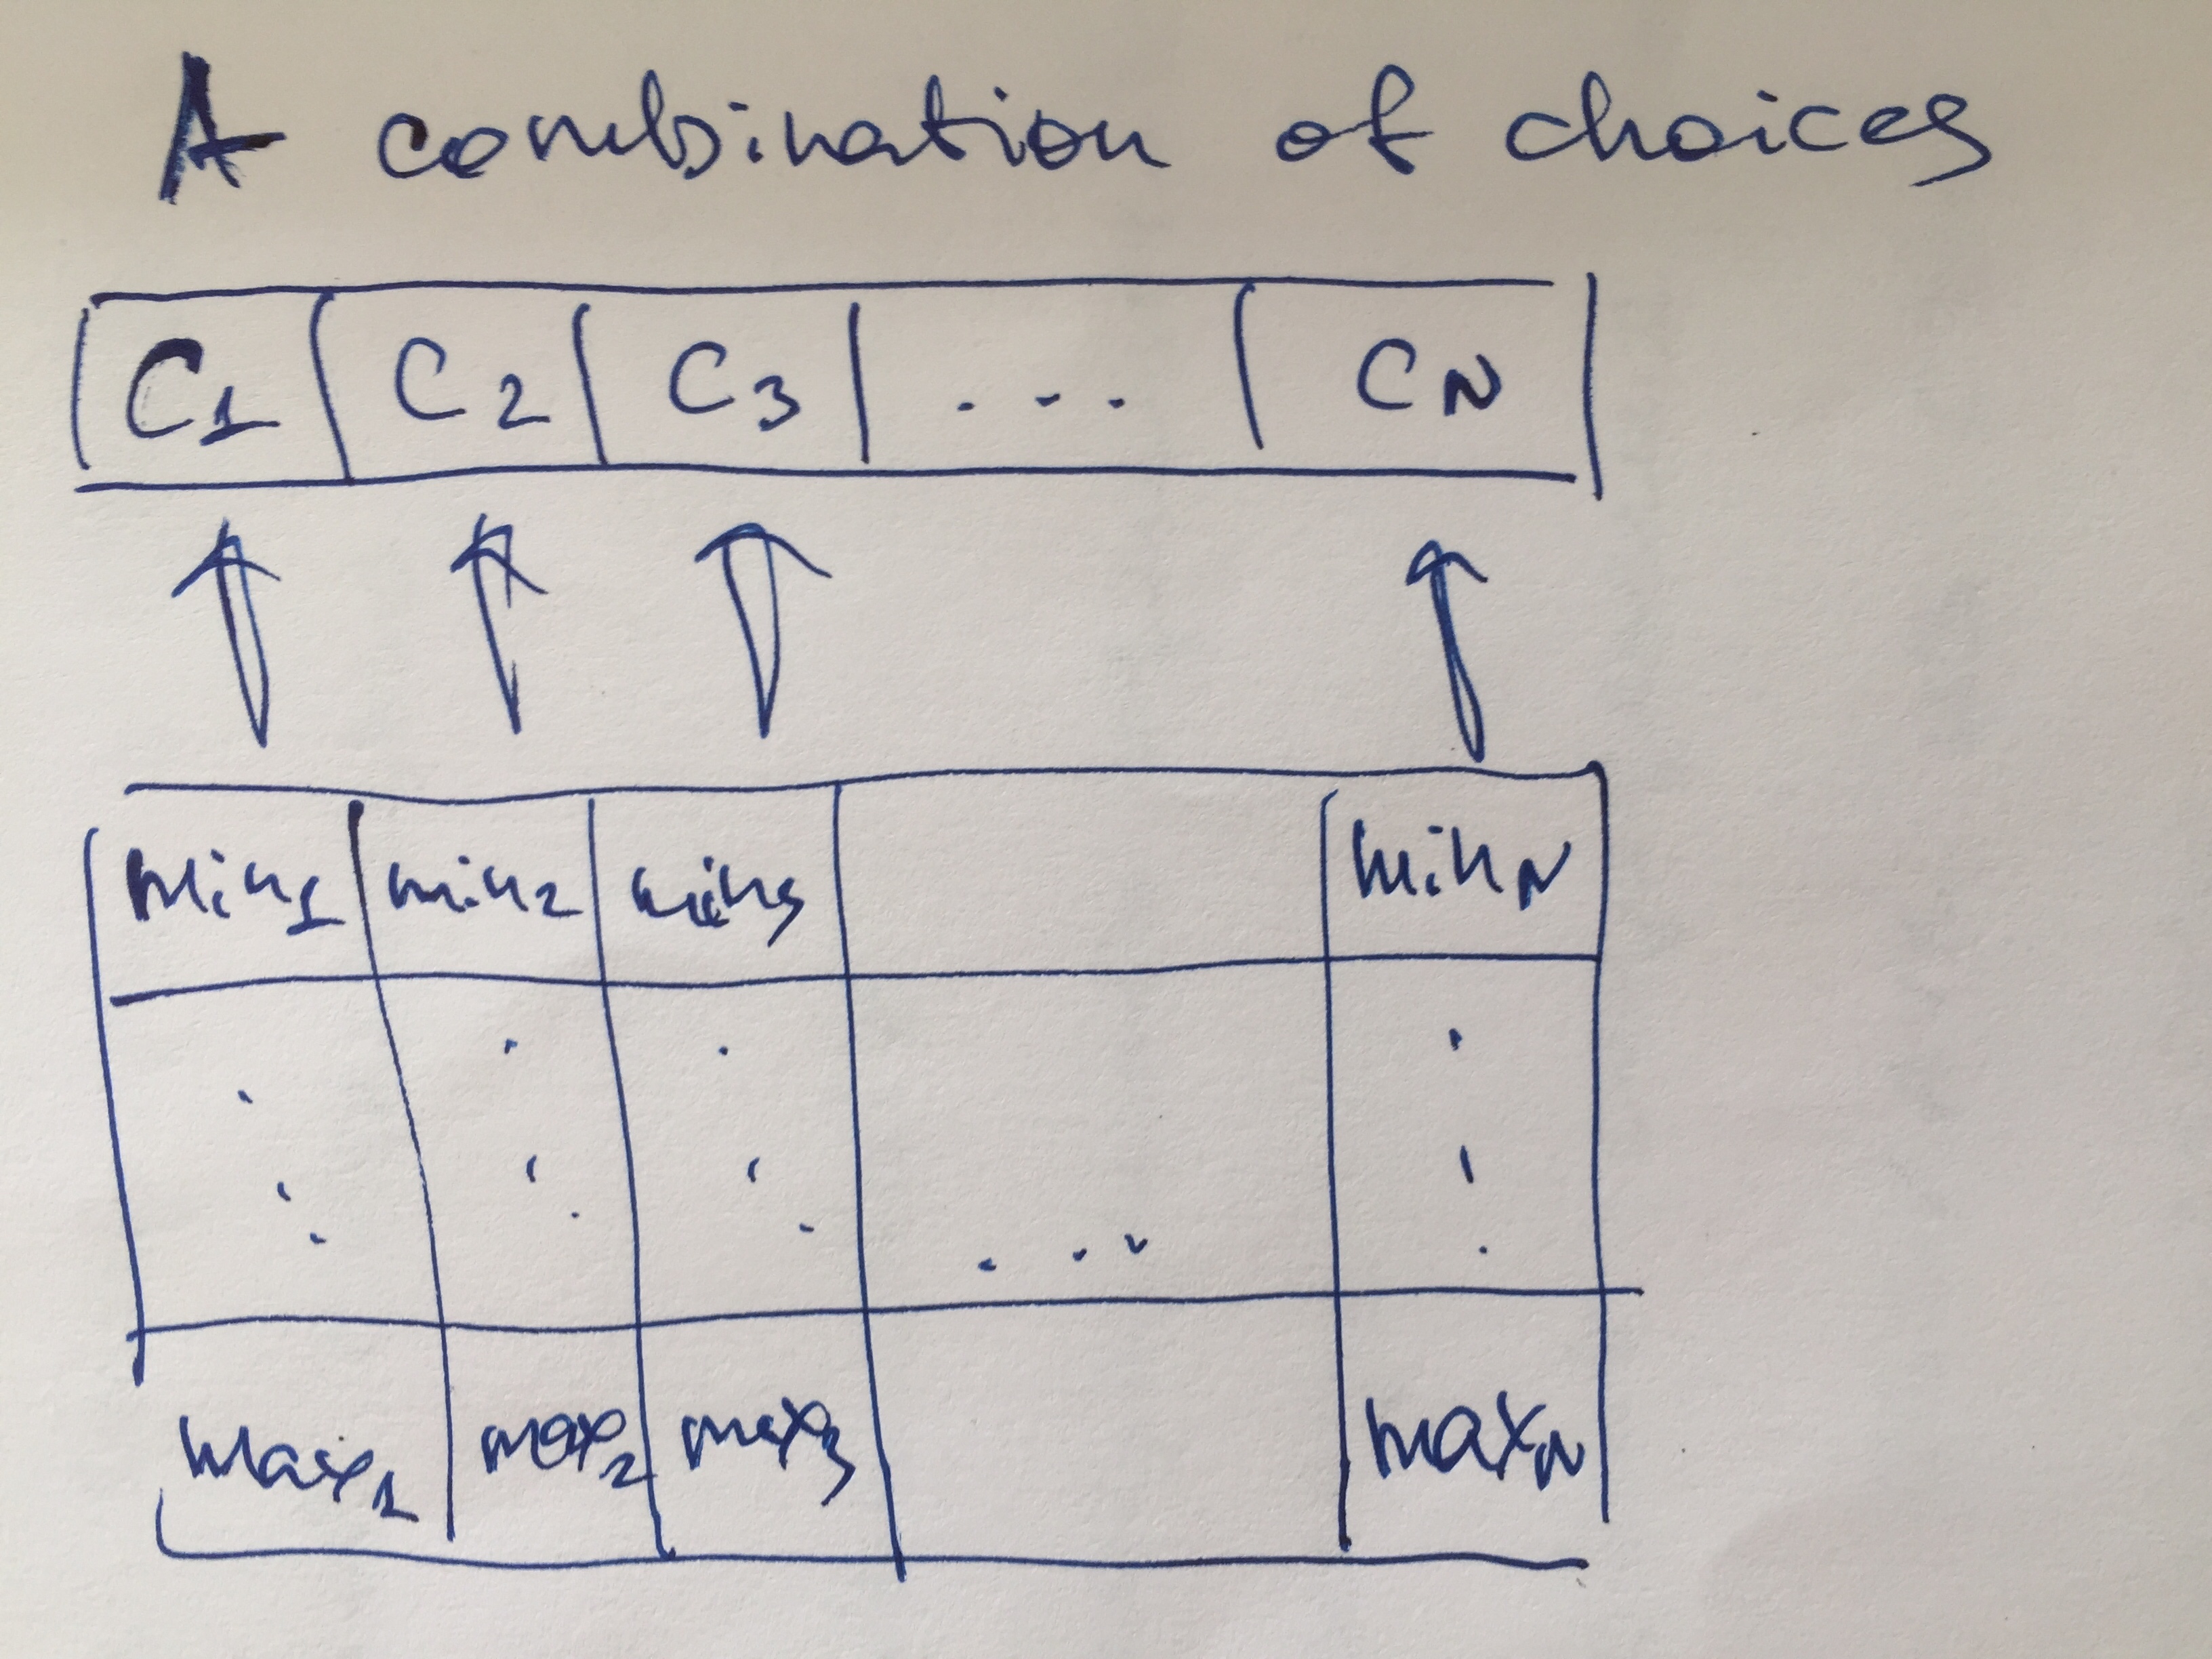 A combination of choices
C1 C2 C3 ... CN
min1 min2 min3 minN
...
max1 max2 max3 maxN